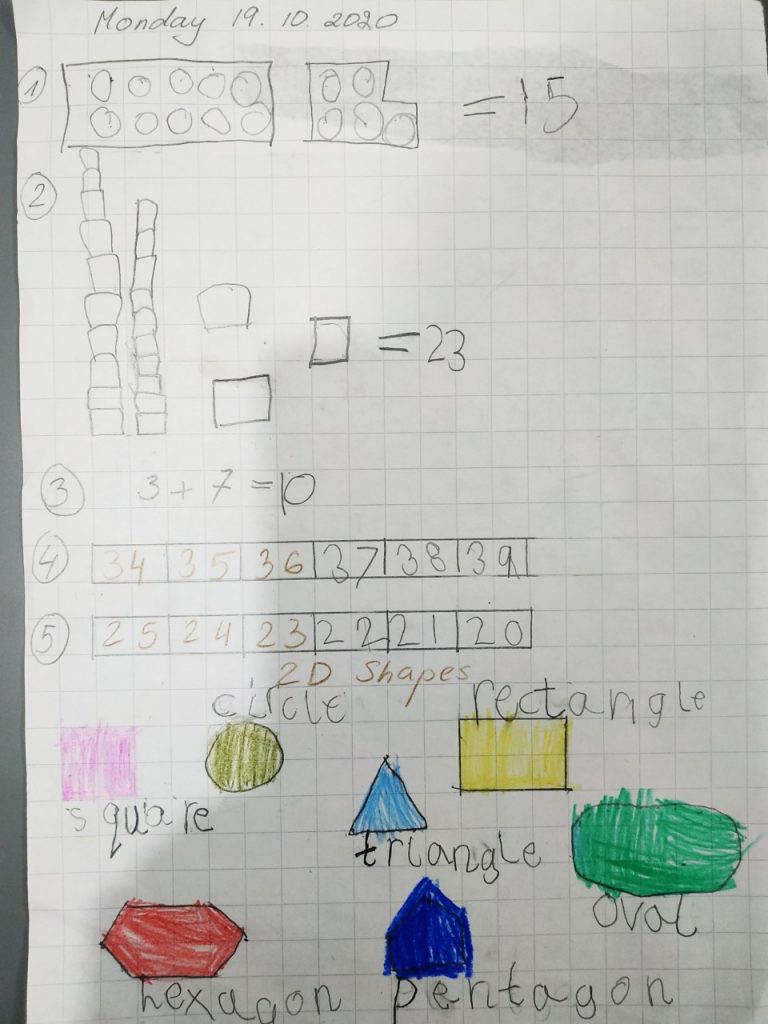 Monday 19. 10. 2020
1 = 15
2
= 23
3 3 + 7 = 10
4 34 35 36 37 38 39
5 25 24 23 22 21 20
2D Shapes
circle rectangle
square
triangle
oval
hexagon pentagon